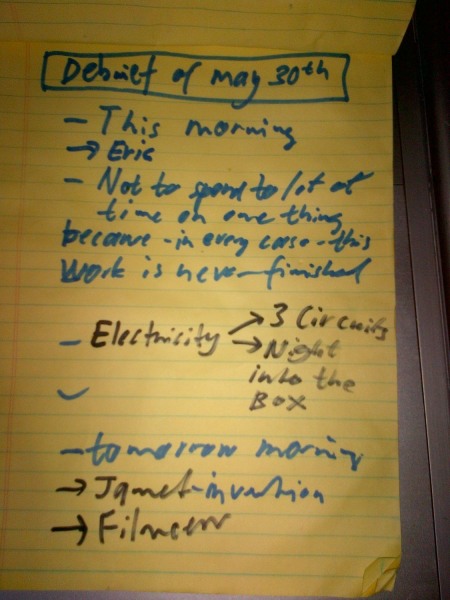 Debrief of may 30th
- This morning
→ Eric
- Not to spend to lot of
time on one thing
because - in every case - this
work is never finished
- Electricity → 3 Circuits
→ Night
into the
Box
- tomorrow morning
→ Janet - invention
→